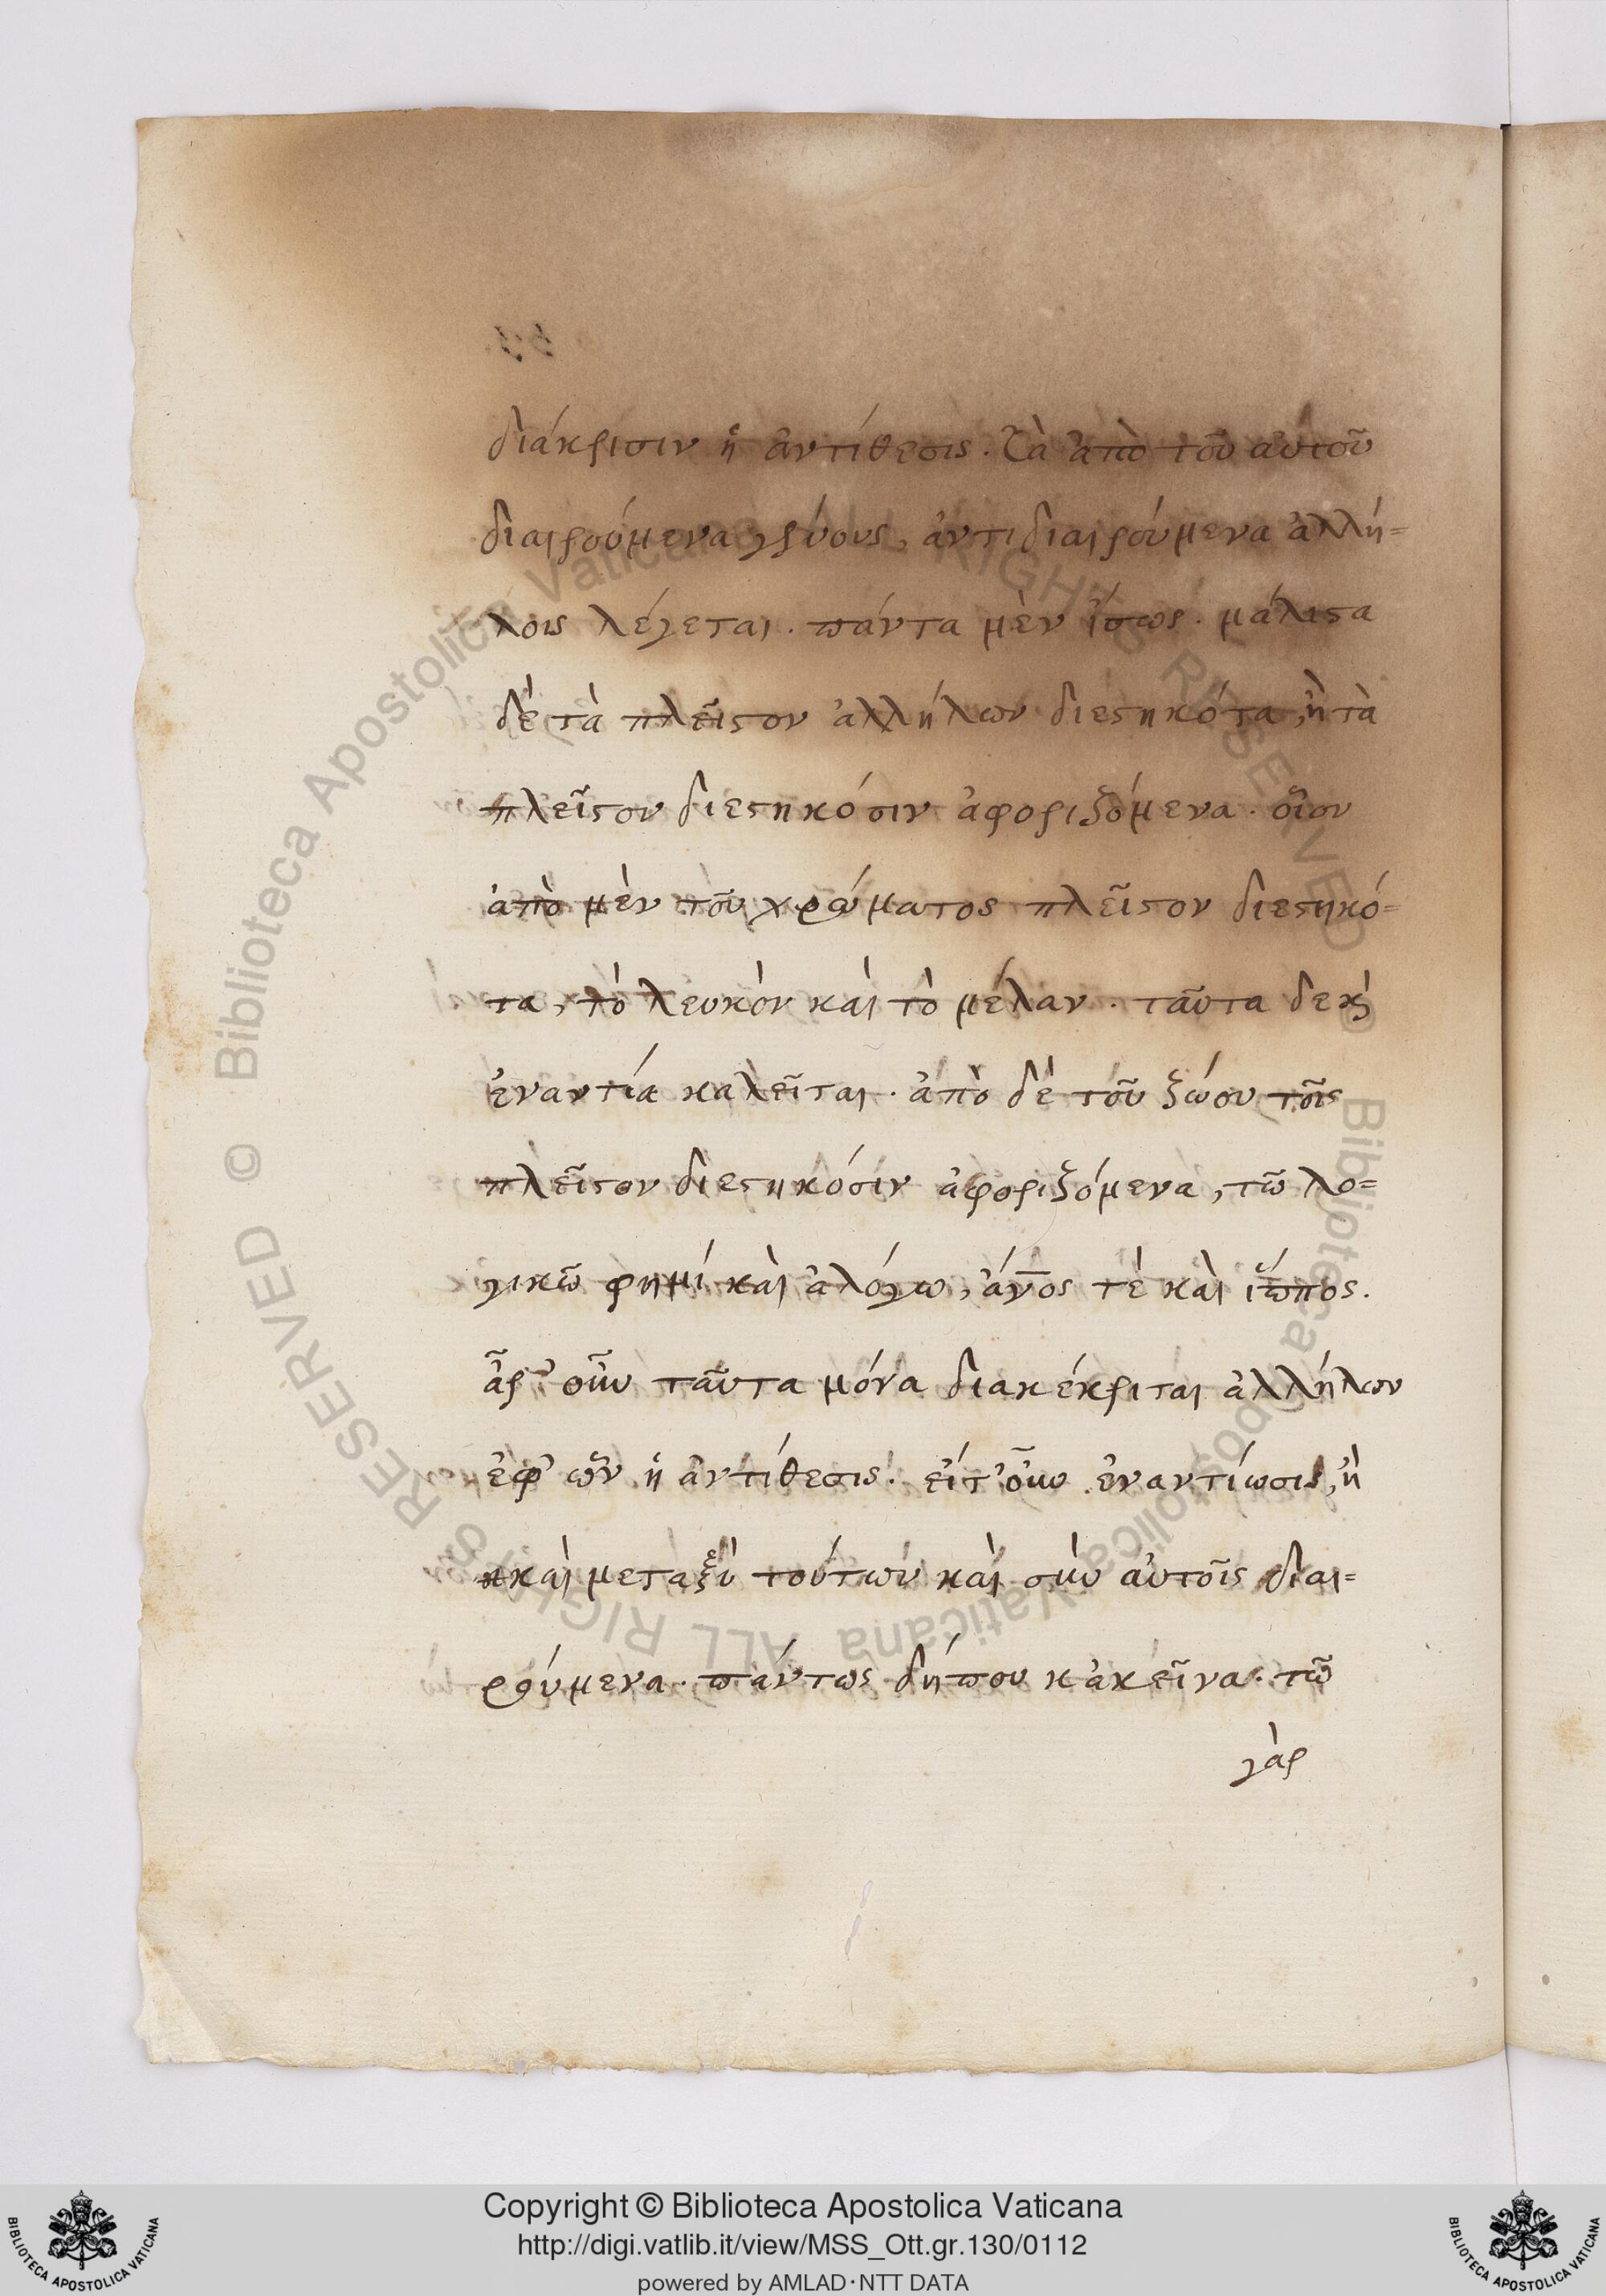 διάκρισιν ἡ ἀντίθεσις. Τὰ ἀπὸ τοῦ αὐτοῦ
διαιρούμενα γένους, ἀντιδιαιρούμενα ἀλλή=
λοις λέγεται. πάντα μὲν ἴσως. μάλιστα
δὲ τὰ πλεῖστον ἀλλήλων διεστηκότα, ἢ τὰ
πλεῖστον διεστηκόσιν ἀφοριζόμενα. οἷον
ἀπὸ μὲν τοῦ χρώματος πλεῖστον διεστηκό=
τα, τὸ λευκὸν καὶ τὸ μέλαν. ταῦτα δε κ̀
ἐναντία καλεῖται. ἀπὸ δὲ τοῦ ζώου τοῖς
πλεῖστον διεστηκόσιν ἀφοριζόμενα, τῶ λο=
γικῶ φημί καὶ ἀλόγω, ἄνος τὲ καὶ ἵππος.
ἆρ' οὖν ταῦτα μόνα διακέκριται ἀλλήλων
ἐφ' ὧν ἡ ἀντίθεσις. εἴτ' οὖν ἐναντίωσις, ἢ
καὶ μεταξὺ τούτων καὶ σὺν αὐτοῖς διαι=
ρούμενα. πάντως δήπου κἀκεῖνα. τῶ
γὰρ
Copyright © Biblioteca Apostolica Vaticana
http://digi.vatlib.it/view/MSS_Ott.gr.130/0112
powered by AMLAD·NTT DATA
BIBLIOTECA APOSTOLICA VATICANA
BIBLIOTECA APOSTOLICA VATICANA
© Biblioteca Apostolica Vaticana ALL RIGHTS RESERVED © Biblioteca Apostolica Vaticana ALL RIGHTS RESERVED